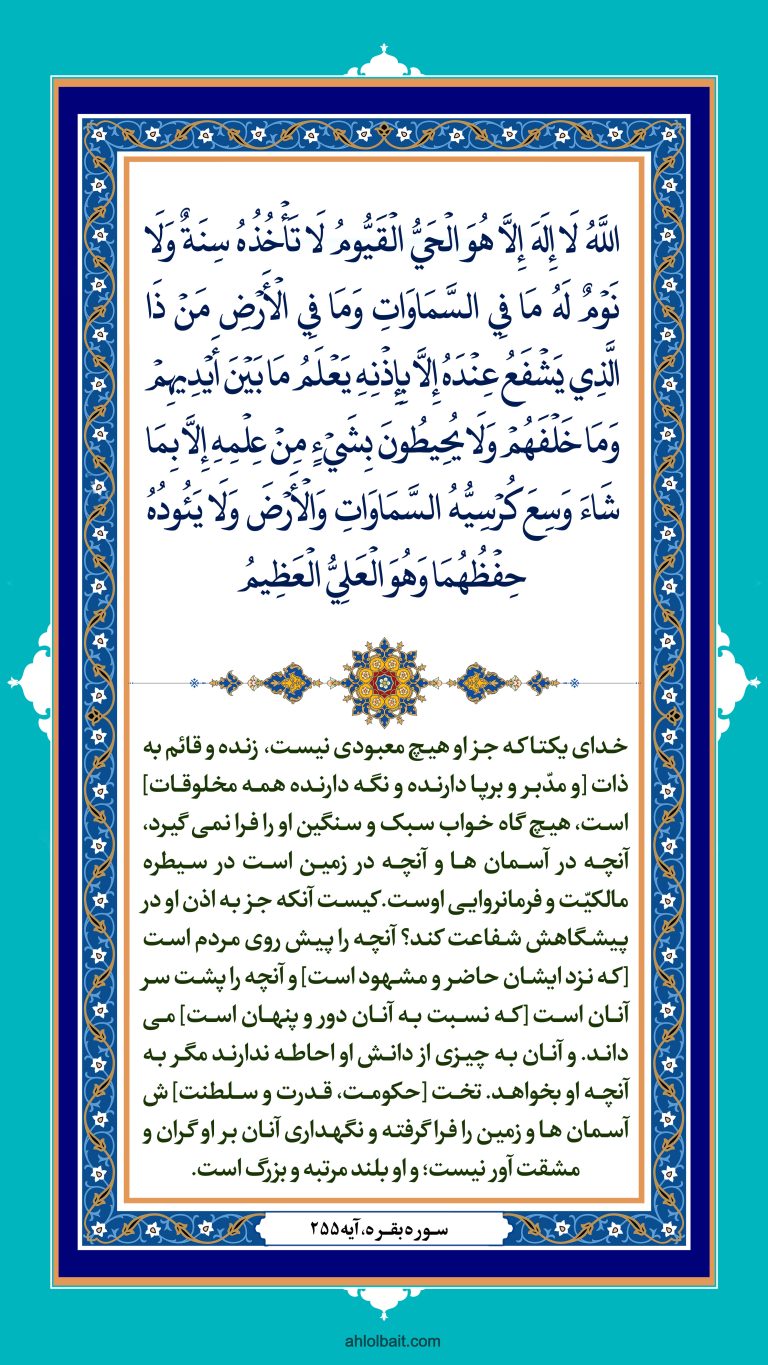 اللَّهُ لَا إِلَهَ إِلَّا هُوَ الْحَيُّ الْقَيُّومُ لَا تَأْخُذُهُ سِنَةٌ وَلَا
نَوْمٌ لَهُ مَا فِي السَّمَاوَاتِ وَمَا فِي الْأَرْضِ مَنْ ذَا
الَّذِي يَشْفَعُ عِنْدَهُ إِلَّا بِإِذْنِهِ يَعْلَمُ مَا بَيْنَ أَيْدِيهِمْ
وَمَا خَلْفَهُمْ وَلَا يُحِيطُونَ بِشَيْءٍ مِنْ عِلْمِهِ إِلَّا بِمَا
شَاءَ وَسِعَ كُرْسِيُّهُ السَّمَاوَاتِ وَالْأَرْضَ وَلَا يَئُودُهُ
حِفْظُهُمَا وَهُوَ الْعَلِيُّ الْعَظِيمُ
خدای یکتا که جز او هیچ معبودی نیست، زنده و قائم به
ذات [و مدّبر و برپا دارنده و نگه دارنده همه مخلوقات]
است، هیچ گاه خواب سبک و سنگین او را فرا نمی گیرد،
آنچه در آسمان ها و آنچه در زمین است در سیطره
مالکیّت و فرمانروایی اوست.کیست آنکه جز به اذن او در
پیشگاهش شفاعت کند؟ آنچه را پیش روی مردم است
[که نزد ایشان حاضر و مشهود است] و آنچه را پشت سر
آنان است [که نسبت به آنان دور و پنهان است] می
داند. و آنان به چیزی از دانش او احاطه ندارند مگر به
آنچه او بخواهد. تخت [حکومت، قدرت و سلطنت] ش
آسمان ها و زمین را فرا گرفته و نگهداری آنان بر او گران و
مشقت آور نیست؛ و او بلند مرتبه و بزرگ است.
سوره بقره، آیه ۲۵۵
ahlolbait.com